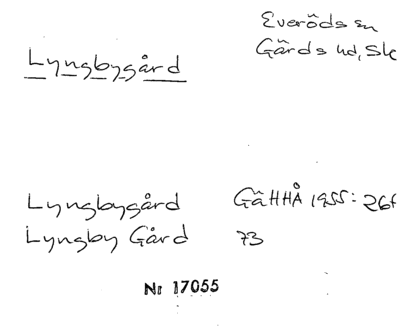 Everöds sn
Lyngbygård
Gärds hd, Sk
Lyngbygård GäHHÅ 1955: 26f
Lyngby Gård 73
Nr 17055